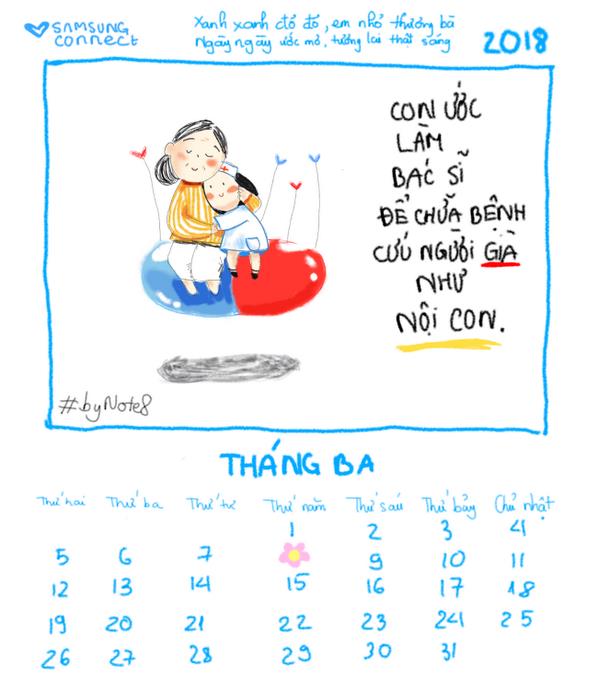 SAMSUNG
connect
Xanh xanh đỏ đỏ, em nhỏ thương bà
Ngày ngày ước mơ, tương lai thật sáng
2018
CON ƯỚC
LÀM
BÁC SĨ
ĐỂ CHỮA BỆNH
CỨU NGƯỜI GIÀ
NHƯ
NỘI CON.
#byNote8
THÁNG BA
Thứ hai Thứ ba Thứ tư Thứ năm Thứ sáu Thứ bảy Chủ nhật
1 2 3 4
5 6 7 9 10 11
12 13 14 15 16 17 18
19 20 21 22 23 24 25
26 27 28 29 30 31